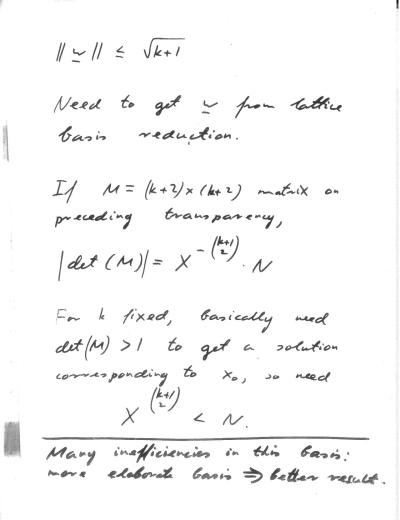 ‖w‖ ≤ √k+1
Need to get w from lattice
basis reduction.
If M = (k+2)×(k+2) matrix on
preceding transparency,
|det(M)| = X^{-\binom{k+1}{2}} · N
For k fixed, basically need
det(M) > 1 to get a solution
corresponding to x₀, so need
X^{\binom{k+1}{2}} < N.
Many inefficiencies in this basis:
more elaborate basis ⇒ better result.